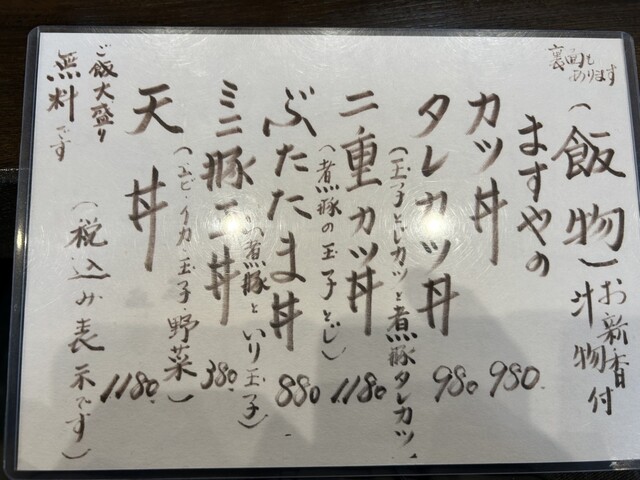 裏面も
あります
(飯物)お新香
汁物付
ますやの
カツ丼 980.
タレカツ丼 980
(玉子とじカツと煮豚タレカツ)
二重カツ丼 1180.
(煮豚の玉子とじ)
ぶたたま丼 880
(煮豚といり玉子)
ミニ豚二丼 380.
(エビ・イカ・玉子・野菜)
天丼 1180.
(税込み表示です)
ご飯大盛り
無料です